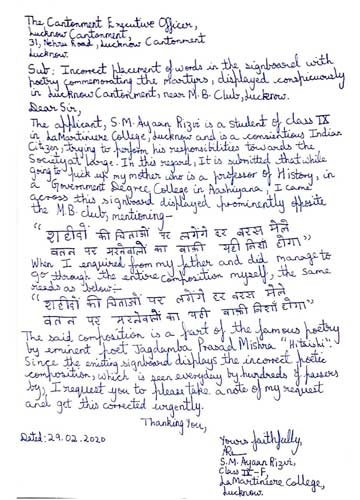 The Cantonment Executive Officer,
Lucknow Cantonment,
31, Nehru Road, Lucknow Cantonment
Lucknow.
Sub: Incorrect placement of words in the signboard with
poetry commemorating the martyrs, displayed conspicuously
in Lucknow Cantonment, near M.B. Club, Lucknow.
Dear Sir,
The applicant, S.M. Ayaan Rizvi is a student of class IX
in LaMartiniere College, Lucknow and is a conscientious Indian
Citizen, trying to perform his responsibilities towards the
Society at large. In this regard, It is submitted that while
going to pick up my mother who is a professor of History, in
a Government Degree College in Aashiyana, I came
across this signboard displayed prominently opposite
the M.B. club, mentioning-
"शहीदों की चिताओं पर लगेंगे हर बरस मेले
वतन पर मरनेवालों का बाकी यही निशां होगा"
When I enquired from my father and did manage to
go through the entire composition myself, the same
reads as below:-
"शहीदों की चिताओं पर लगेंगे हर बरस मेले
वतन पर मरनेवालों का यही बाकी निशाँ होगा"
The said composition is a part of the famous poetry
by eminent poet Jagdamba Prasad Mishra "Hitaishi".
Since the existing signboard displays the incorrect poetic
composition, which is seen everyday by hundreds of passers
by, I request you to please take a note of my request
and get this corrected urgently.
Thanking You,
Dated: 29.02.2020
Yours faithfully,
S.M. Ayaan Rizvi,
Class IX-F,
LaMartiniere College,
Lucknow.